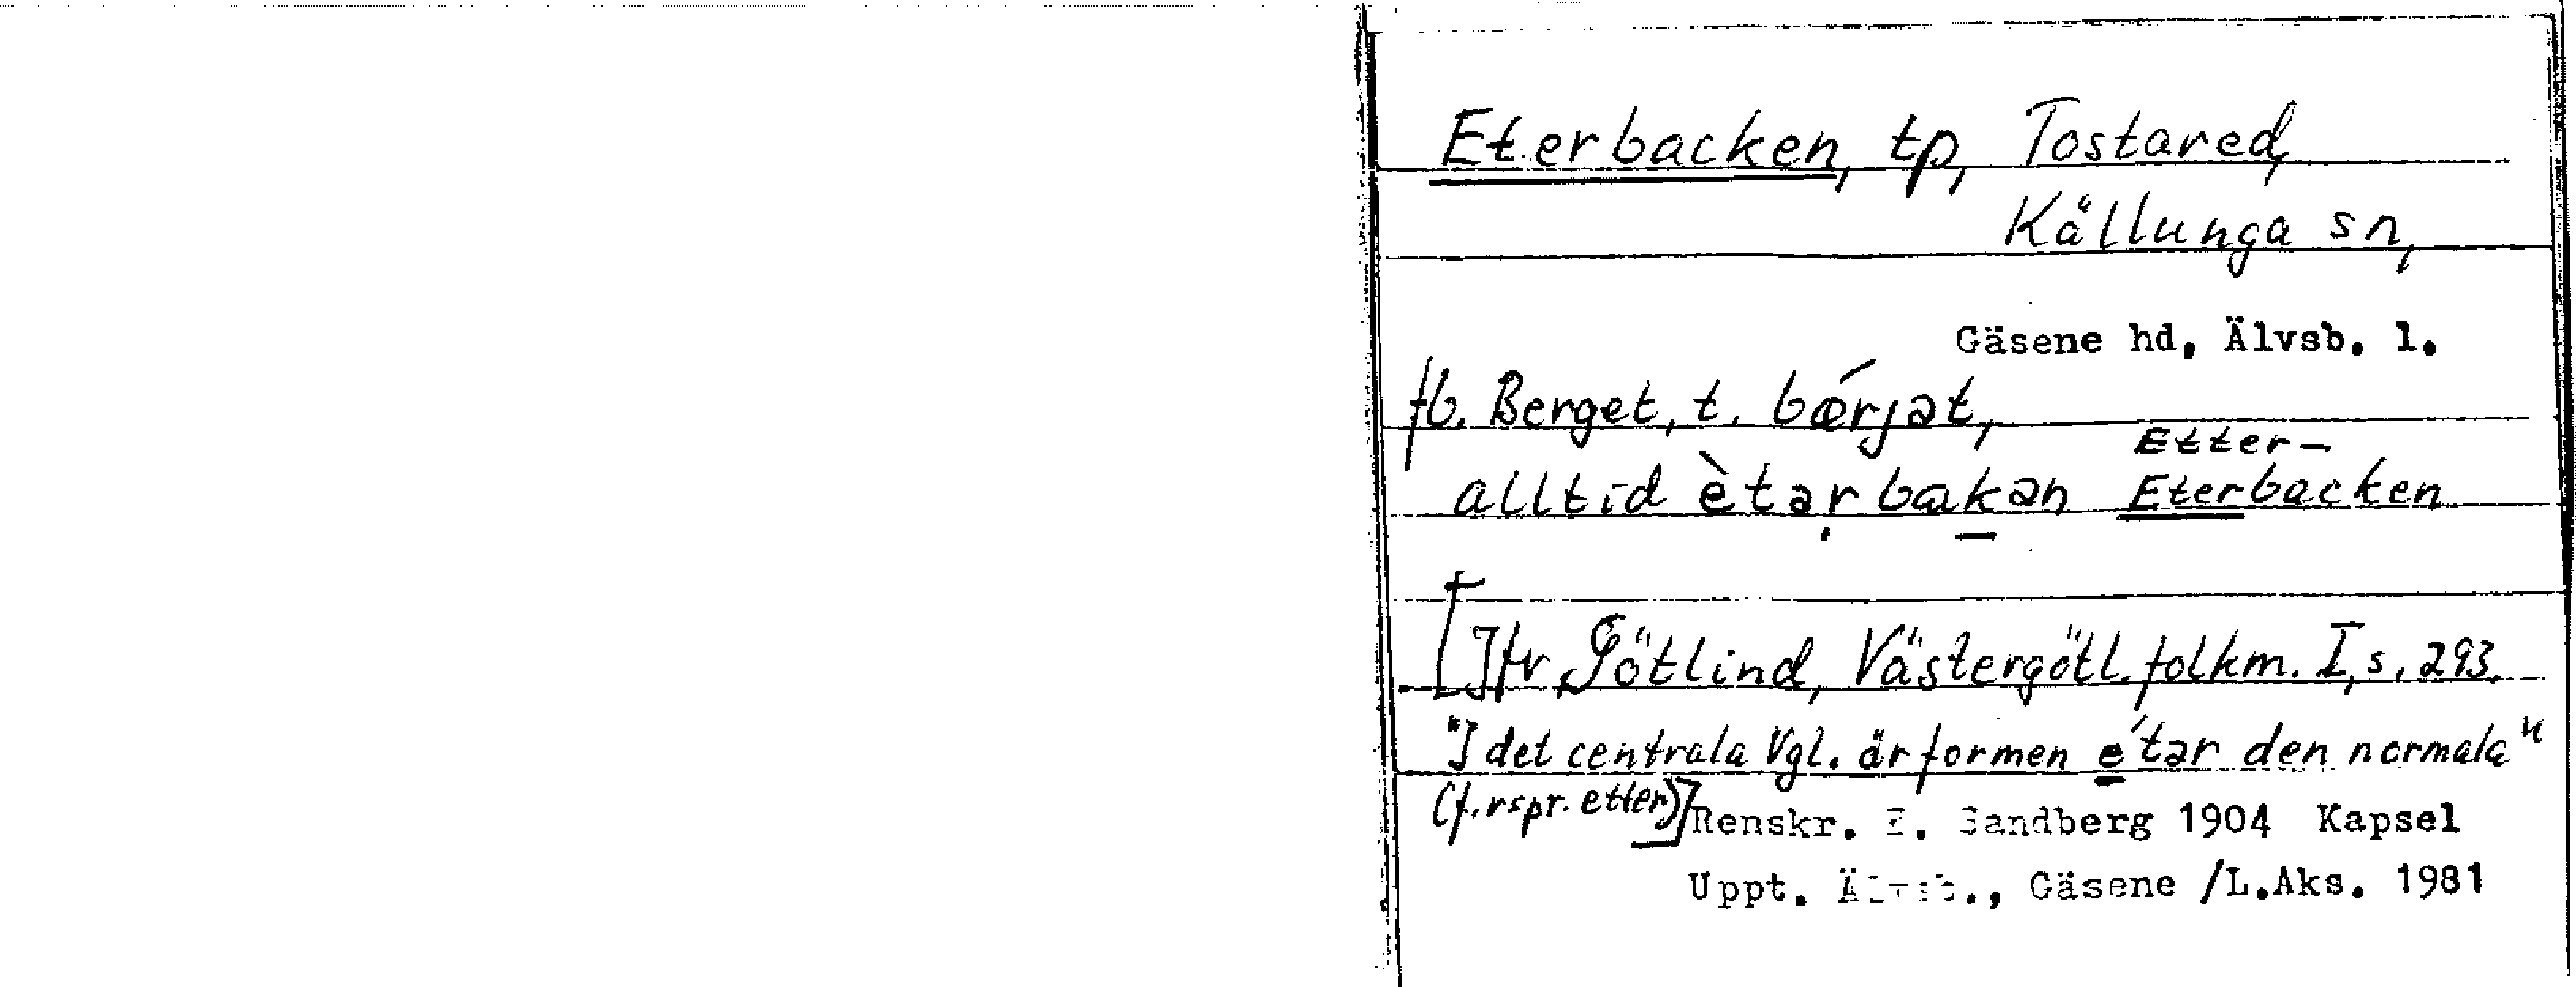 Eterbacken, tp, Tostared,
Källunga sn,
Gäsene hd, Älvsb. l.
fb. Berget, t. bœ́rjət,
Etter-
alltid ètər̩bakən Eterbacken
[Jfr Götlind, Västergötl. folkm. I, s. 293.
"I det centrala Vgl. är formen e'tər den normala"
(f. rspr. etter)]
Renskr. E. Sandberg 1904 Kapsel
Uppt. Älvsb., Gäsene /L.Aks. 1981